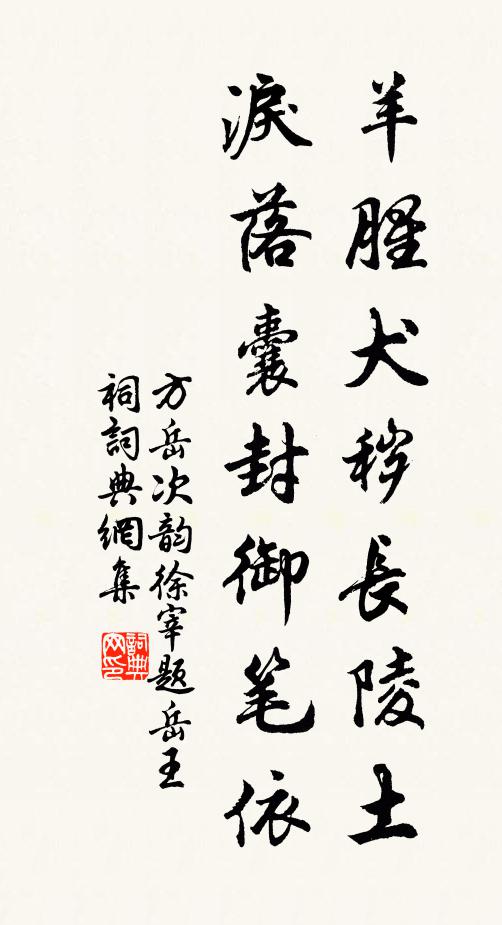 羊腥犬秽長陵土
淚落囊封御笔依
方岳次韵徐宰题岳王
祠詞典網集
詞典网印